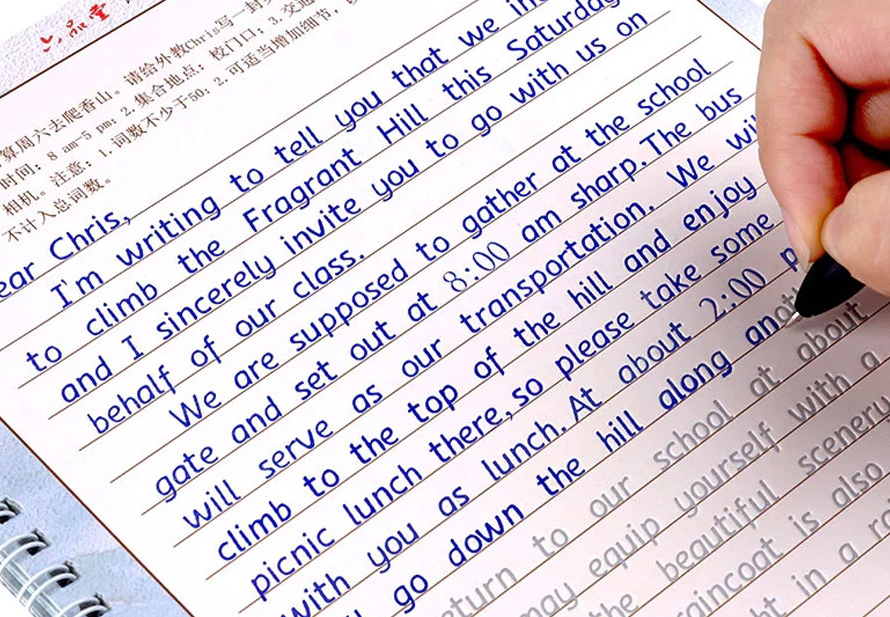 六品堂
算周六去爬香山。请给外教Chris写一封
时间：8 am-5 pm；2. 集合地点：校门口；3. 交通
相机。注意：1. 词数不少于50；2. 可适当增加细节，以
不计入总词数。
ear Chris,
I'm writing to tell you that we in
to climb the Fragrant Hill this Saturday
and I sincerely invite you to go with us on
behalf of our class.
We are supposed to gather at the school
gate and set out at 8:00 am sharp. The bus
will serve as our transportation. We wil
climb to the top of the hill and enjoy
picnic lunch there, so please take some
with you as lunch. At about 2:00 p
go down the hill along anoth
eturn to our school at about
may equip yourself with a
the beautiful scenery
raincoat is also
ht in a ra